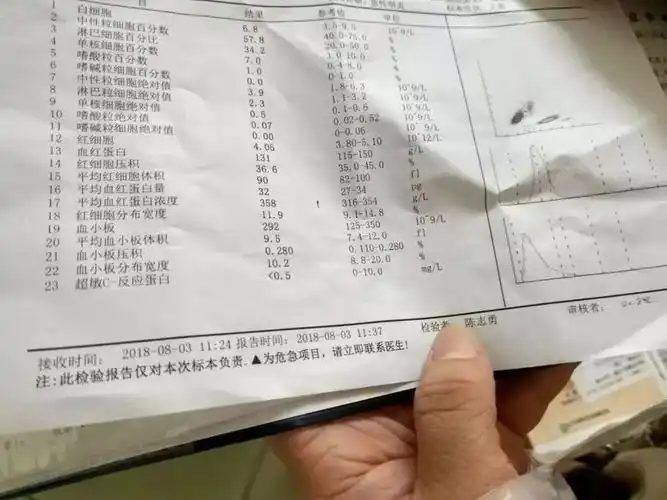 目 结果 参考值 单位
1 白细胞 6.8 3.5-9.5 10^9/L
2 中性粒细胞百分数 57.8 40.0-75.0 %
3 淋巴细胞百分比 34.2 20.0-50.0 %
4 单核细胞百分数 7.0 3.0-10.0 %
5 嗜酸粒百分数 1.0 0.4-8.0 %
6 嗜碱粒细胞百分数 0.0 0-1.0 %
7 中性粒细胞绝对值 3.9 1.8-6.3 10^9/L
8 淋巴粒细胞绝对值 2.3 1.1-3.2 10^9/L
9 单核细胞绝对值 0.5 0.1-0.6 10^9/L
10 嗜酸粒细胞绝对值 0.07 0.02-0.52 10^9/L
11 嗜碱粒细胞绝对值 0.00 0-0.06 10^9/L
12 红细胞 4.05 3.80-5.10 10^12/L
13 血红蛋白 131 115-150 g/L
14 红细胞压积 36.6 35.0-45.0 %
15 平均红细胞体积 90 82-100 fl
16 平均血红蛋白量 32 27-34 pg
17 平均血红蛋白浓度 358 ↑ 316-354 g/L
18 红细胞分布宽度 11.9 9.1-14.8 %
19 血小板 292 125-350 10^9/L
20 平均血小板体积 9.5 7.4-12.0 fl
21 血小板压积 0.280 0.110-0.280 %
22 血小板分布宽度 10.2 8.8-20.0 %
23 超敏C-反应蛋白 <0.5 0-10.0 mg/L
接收时间： 2018-08-03 11:24 报告时间：2018-08-03 11:37 检验者 陈志勇 审核者：
注：此检验报告仅对本次标本负责.▲为危急项目，请立即联系医生！